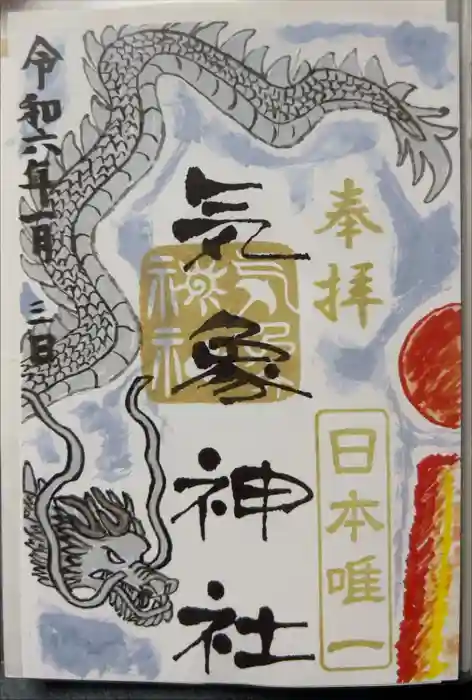 奉拝
日本唯一
気象神社
気象神社
令和六年一月三日